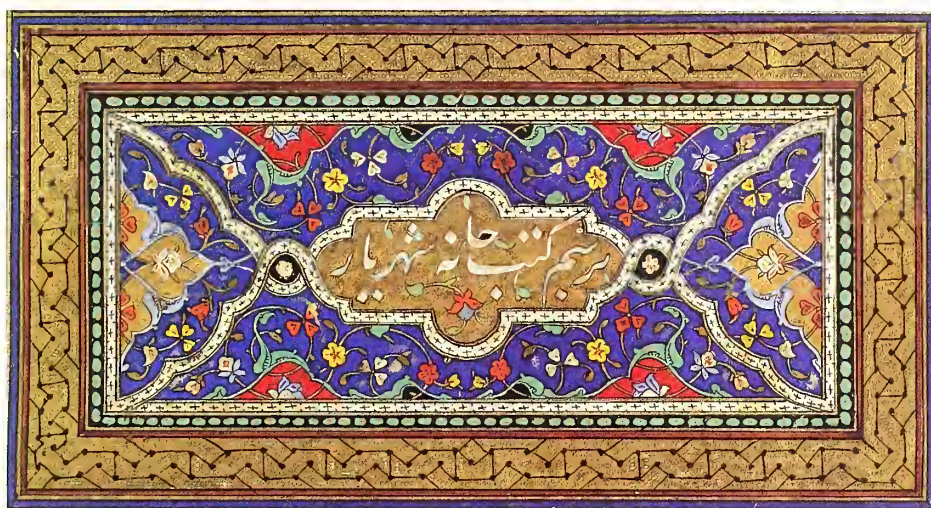 برسم کتبخانه شهریار